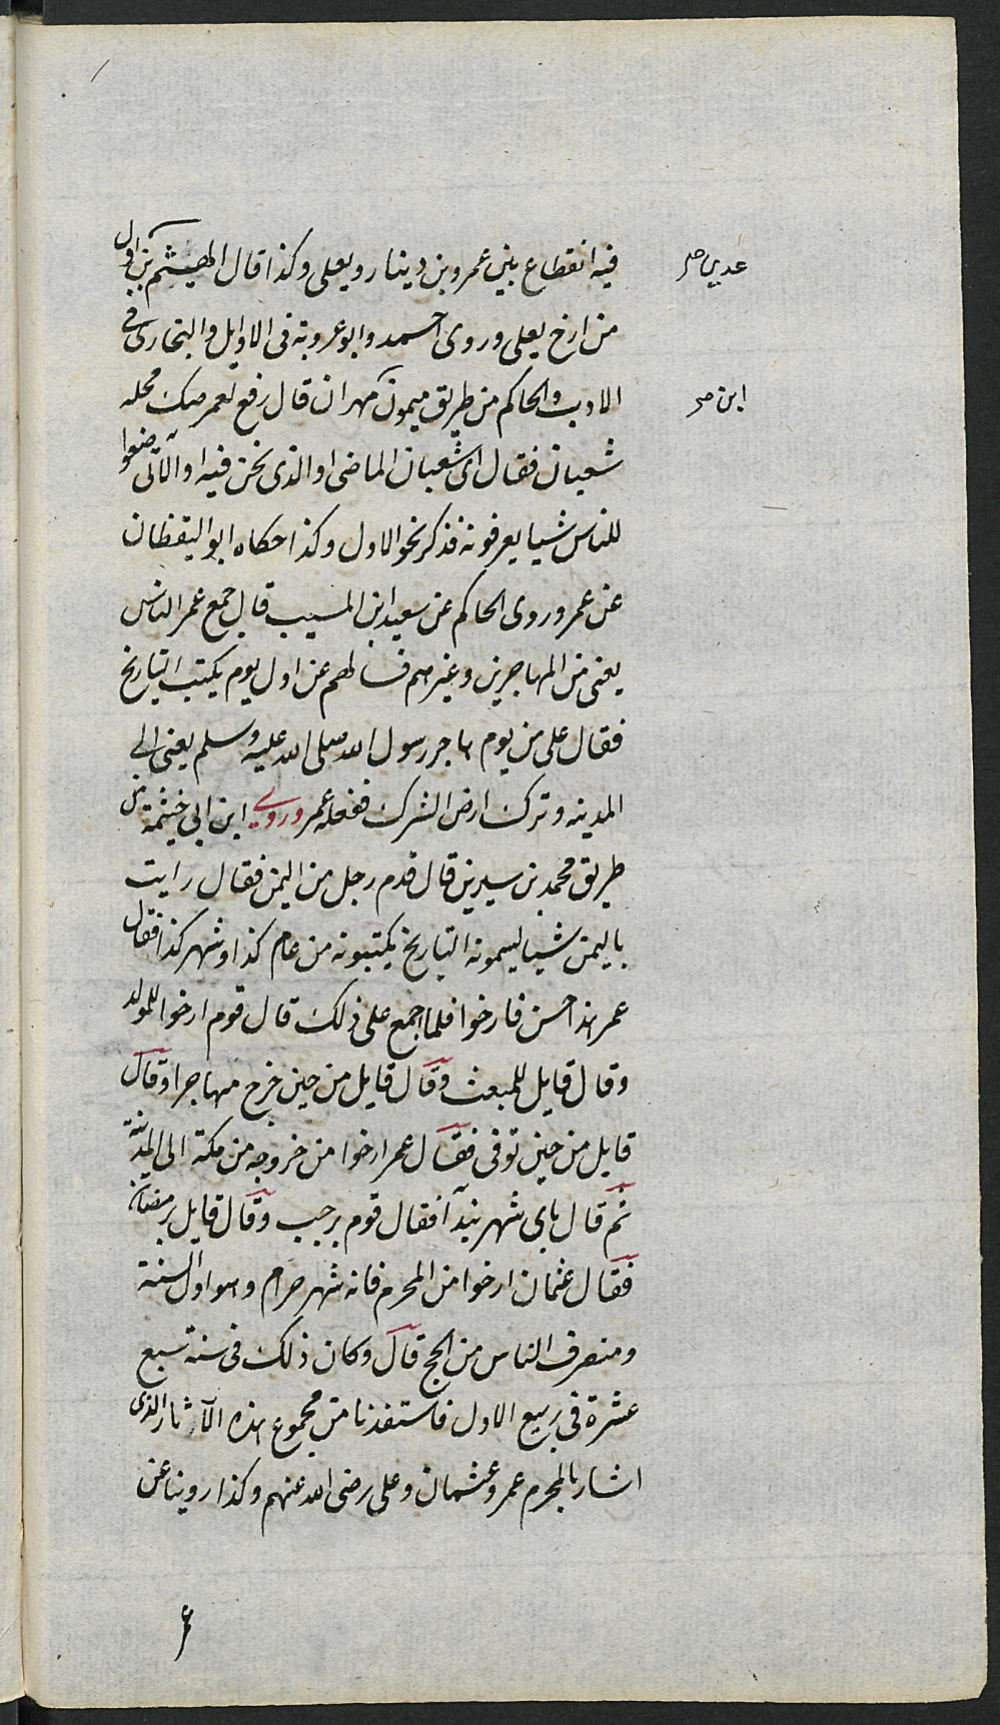 فيه انقطاع بين عمرو بن دينار ويعلى وكذا قال الهيثم بن اول
عدي صح
من ارخ يعلى وروى احمد وابو عروبة فى الاوايل والبخارى فى
الادب والحاكم من طريق ميمون مهران قال رفع لعمر صك محله
ابن صح
شعبان فقال اى شعبان الماضى او الذى نحن فيه او الآتى ضعوا
للناس شيا يعرفونه فذكر نحو الاول وكذا حكاه ابو اليقظان
عن عمر وروى الحاكم عن سعيد ابن المسيب قال جمع عمر الناس
يعنى من المهاجرين وغيرهم فسالهم عن اول يوم يكتب التاريخ
فقال على من يوم هاجر رسول الله صلى الله عليه وسلم يعنى الى
المدينه وترك ارض الشرك ففعله عمر وروى ابن ابى خيثمة من
طريق محمد بن سيرين قال قدم رجل من اليمن فقال رايت
باليمن شيا يسمونه التاريخ يكتبونه من عام كذا وشهر كذا فقال
عمر هذا حسن فارخوا فلما اجمع على ذلك قال قوم ارخوا للمولد
وقال قايل للمبعث وقال قايل من حين خرج مهاجرا وقال
قايل من حين توفى فقال عمر ارخوا من خروجه من مكة الى المدينة
ثم قال باى شهر نبدآ فقال قوم برجب وقال قايل برمضان
فقال عثمان ارخوا من المحرم فانه شهر حرام وهو اول السنة
ومنصرف الناس من الحج قال وكان ذلك فى سنة سبع
عشرة فى ربيع الاول فاستفدنا من مجموع هذه الآثار الذى
اشار بالمحرم عمر وعثمان وعلى رضى الله عنهم وكذا روينا عن